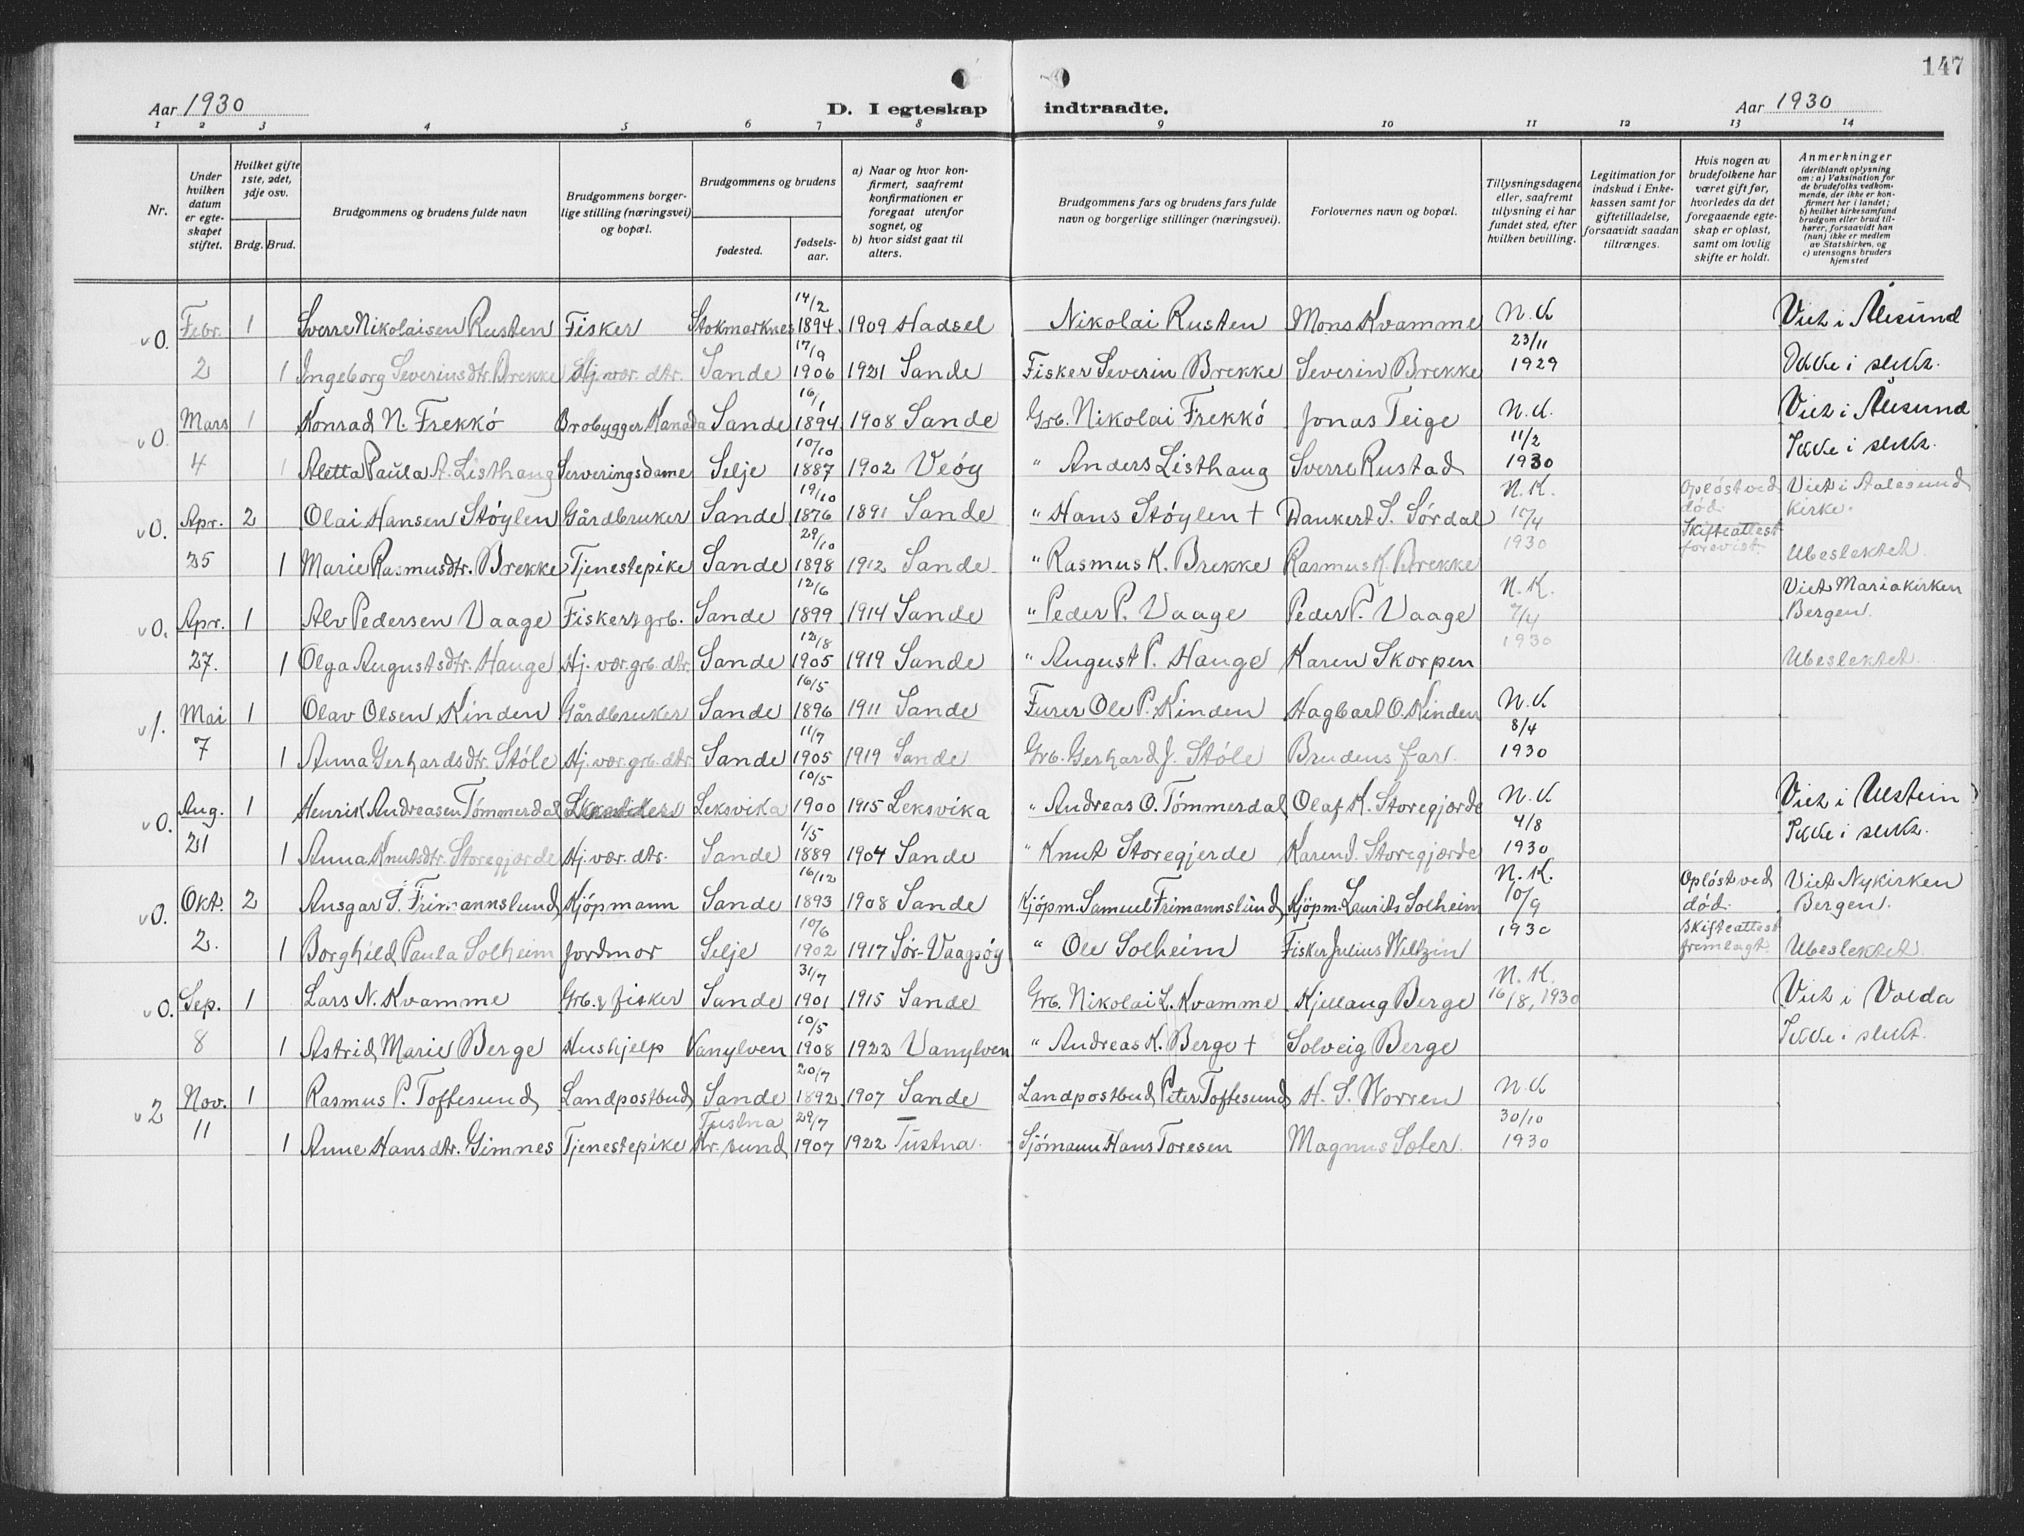 147
Aar 1930 D. I egteskap indtraadte. Aar 1930
1 2 3 4 5 6 7 8 9 10 11 12 13 14
Nr.
Under hvilken datum er egte-skapet stiftet.
Hvilket gifte 1ste, 2det, 3dje osv.
Brdg. Brud.
Brudgommens og brudens fulde navn
Brudgommens borger-lige stilling (næringsvei) og bopæl.
Brudgommens og brudens
fødested. fødsels-aar.
a) Naar og hvor kon-firmert, saafremt konfirmationen er foregaat utenfor sognet, og
b) hvor sidst gaat til alters.
Brudgommens fars og brudens fars fulde navn og borgerlige stillinger (næringsvei).
Forlovernes navn og bopæl.
Tillysningsdagene eller, saafremt tillysning ei har fundet sted, efter hvilken bevilling.
Legitimation for indskud i Enke-kassen samt for giftetilladelse, forsaavidt saadan tiltrænges.
Hvis nogen av brudefolkene har været gift før, hvorledes da det foregaaende egte-skap er opløst, samt om lovlig skifte er holdt.
Anmerkninger (deriblandt oplysning om: a) Vaksination for de brudefolks vedkom-mende, der ikke er kon-firmert her i landet; b) hvilket kirkesamfund brudgom eller brud til-hører, forsaavidt han (hun) ikke er medlem av Statskirken, og c) utensogns bruders hjemsted
v0. Febr. 1 Sverre Nikolaisen Rusten Fisker Stokmarknes 14/2 1894 1909 Hadsel Nikolai Rusten Mons Kvamme N.K Viet i Ålesund
2 1 Ingeborg Severinsdtr. Brekke Hj. vær. dtr. Sande 17/9 1906 1921 Sande Fisker Severin Brekke Severin Brekke 23/11 1929 Ikke i slekt.
v0. Mars 1 Konrad N. Frekkó Brobygger Kanada Sande 16/1 1894 1908 Sande Grb. Nikolai Frekkó Jonas Teige N.K. Viet i Ålesund
4 1 Aletta Paula A. Listhaug Serveringsdame Selje 10/10 1887 1902 Veóy " Anders Listhaug Sverre Rustad 11/2 1930 Ikke i slekt.
v0. Apr. 2 Olai Hansen Støylen Gårdbruker Sande 19/10 1876 1891 Sande " Hans Støylen + Dankert S. Sørdal N.K. 10/4 Opløst ved død. Viet i Aalesund kirke.
25 1 Marie Rasmusdtr. Brekke Tjenestepike Sande 29/10 1898 1912 Sande " Rasmus K. Brekke Rasmus K. Brekke 1930 Skifteattest forevist. Ubeslektet.
v0. Apr. 1 Alv Pedersen Vaage Fisker & grb. Sande 12/6 1899 1914 Sande " Peder P. Vaage Peder P. Vaage N.K. 7/4 Viet Mariakirken Bergen.
27. 1 Olga Augustsdtr. Hauge Hj. vær. grb. dtr. Sande 12/8 1905 1919 Sande " August P. Hauge Karen Skorpen 1930 Ubeslektet.
v1. Mai 1 Olav Olsen Kinden Gårdbruker Sande 16/5 1896 1911 Sande Furer Ole P. Kinden Hagbart O. Kinden N.K
7 1 Anna Gerhardsdtr. Støle Hj. vær. grb. dtr. Sande 11/7 1905 1919 Sande Grb. Gerhard J. Støle Brudens far. 8/4 1930
v0. Aug. 1 Henrik Andreasen Tømmerdal Leksvika 10/5 1900 1915 Leksvika " Andreas O. Tømmerdal Olaf K. Storegjerde N.K Viet i Ulstein
21 1 Anna Knutsdtr. Storegjerde Hj. vær. dtr. Sande 1/5 1889 1904 Sande " Knut Storegjerde Karen J. Storegjerde 4/8 1930 Ikke i slekt.
v0. Okt. 2 Ansgar S. Frimannslund Kjøpmann Sande 16/12 1893 1908 Sande Kjøpm. Samuel Frimannslund Kjøpm. Laurits Solheim N.K. 10/9 Opløst ved død. Viet Nykirken Bergen.
2. 1 Borghild Paula Solheim Jordmor Selje 10/6 1902 1917 Sør-Vaagsøy " Ole Solheim Fisker Julius Weltzin 1930 Skifteattest fremlagt. Ubeslektet.
v0. Sep. 1 Lars N. Kvamme Grb. & fisker Sande 31/7 1901 1915 Sande Grb. Nikolai L. Kvamme Kjellaug Berge N.K. 16/8, 1930 Viet i Volda
8 1 Astrid Marie Berge Hushjelp Vanylven 10/5 1908 1922 Vanylven " Andreas K. Berge + Solveig Berge Ikke i slekt.
v2 Nov. 1 Rasmus P. Toftesund Landpostbud Sande 20/7 1892 1907 Sande Landpostbud Peter Toftesund H. S. Worren N.K
11 1 Anne Hansdtr. Gimnes Tjenestepike Tustna Kr. sund 29/7 1907 1922 Tustna. Sjømann Hans Toresen Magnus Sæter. 30/10 1930